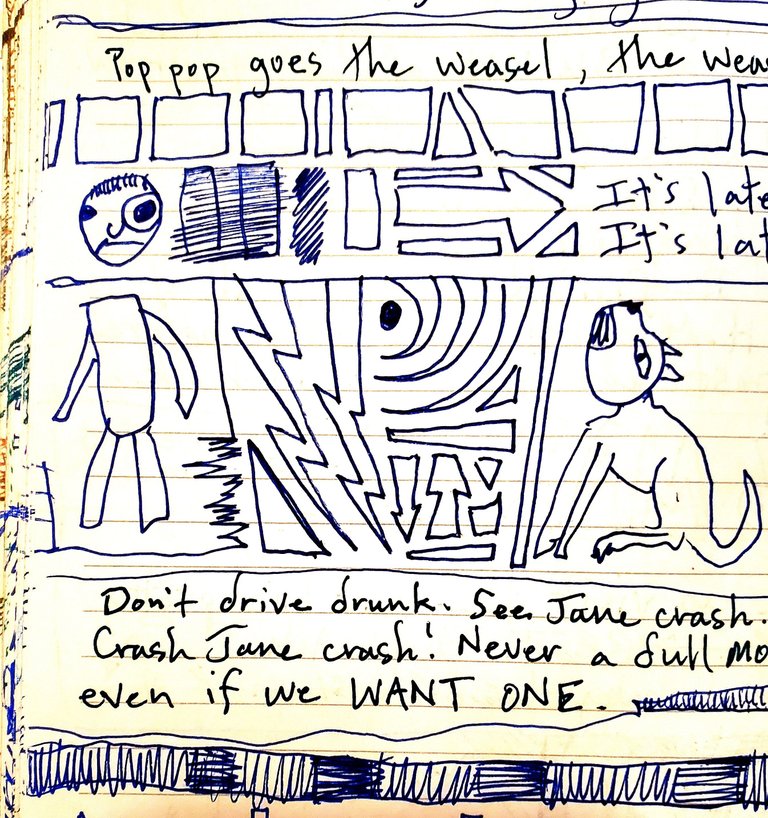 Pop pop goes the weasel, the wea
It's late
It's lat
Don't drive drunk. See Jane crash.
Crash Jane crash! Never a full mo
even if we WANT ONE.